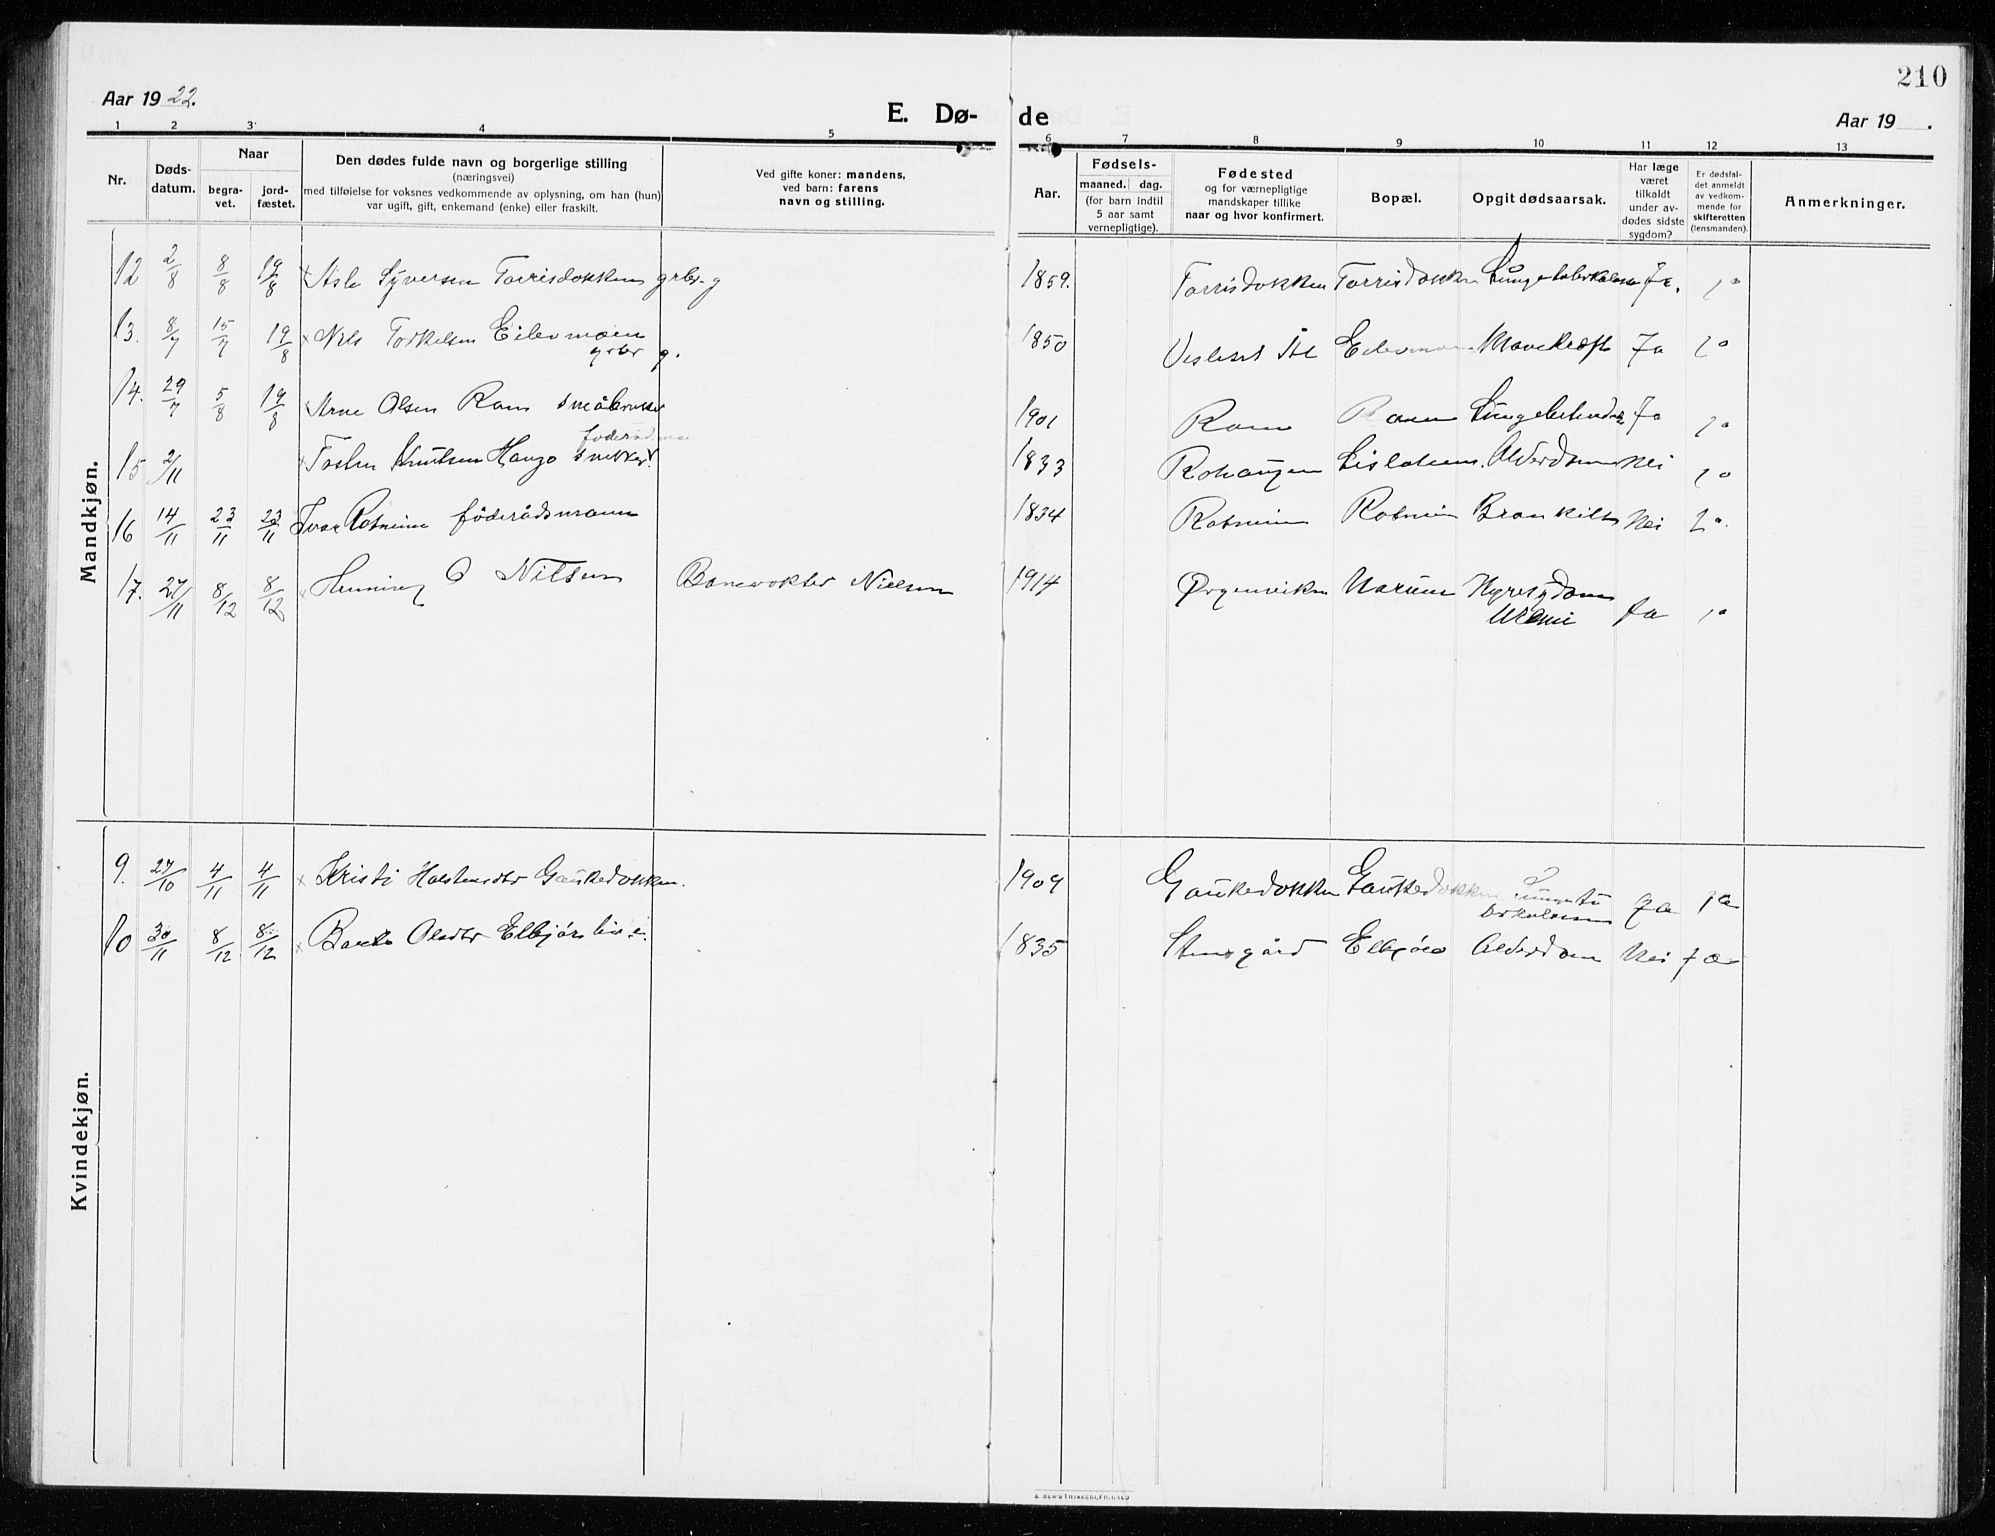 210
Aar 1922.
E. Dø-
de
Aar 19 .
1 2 3 4 5 6 7 8 9 10 11 12 13
Nr.
Døds-
datum.
Naar
begra-
vet.
jord-
fæstet.
Den dødes fulde navn og borgerlige stilling
(næringsvei)
med tilføielse for voksnes vedkommende av oplysning, om han (hun)
var ugift, gift, enkemand (enke) eller fraskilt.
Ved gifte koner: mandens,
ved barn: farens
navn og stilling.
Aar.
Fødsels-
maaned. dag.
(for barn indtil
5 aar samt
vernepligtige).
Fødested
og for værnepligtige
mandskaper tillike
naar og hvor konfirmert.
Bopæl.
Opgit dødsaarsak.
Har læge
været
tilkaldt
under av-
dødes sidste
sygdom?
Er dødsfal-
det anmeldt
av vedkom-
mende for
skifteretten
(lensmanden).
Anmerkninger.
Mandkjøn.
12 2/8 8/8 19/8 Asle Syversen Torrisdokken grbr. g 1859. Torrisdokken Torrisdokken Lungetuberkulose Ja. Ja
13. 8/7 15/7 19/8 Nils Torkelsen Eilevmoen
grbr g. 1850 Vesleset Ål Eilevmoen Mavekræft Ja Ja
14. 29/7 5/8 19/8 Arne Olsen Ram småbruker 1901 Ram Ram Ja Ja
føderådsman
15 2/11 Knutsen Haugo snekker 1833 Alderdom Nei Ja
16 14/11 23/11 23/11 Ivar føderådsmann 1834 Nei Ja.
17. 27/11 8/12 8/12 Henning O Nilsen Banevokter Nielsen 1914 Ørgenviken Nyresygdom
Uremi Ja Ja
Kvindekjøn.
9. 27/10 4/11 4/11 Kristi Holstensdtr Gaukedokken. 1909 Gaukedokken Gaukedokken Lungetu
berkulose Ja Ja
10 30/11 8/12 8/12 Olsdtr 1835 Stensgård Alderdom Nei Ja